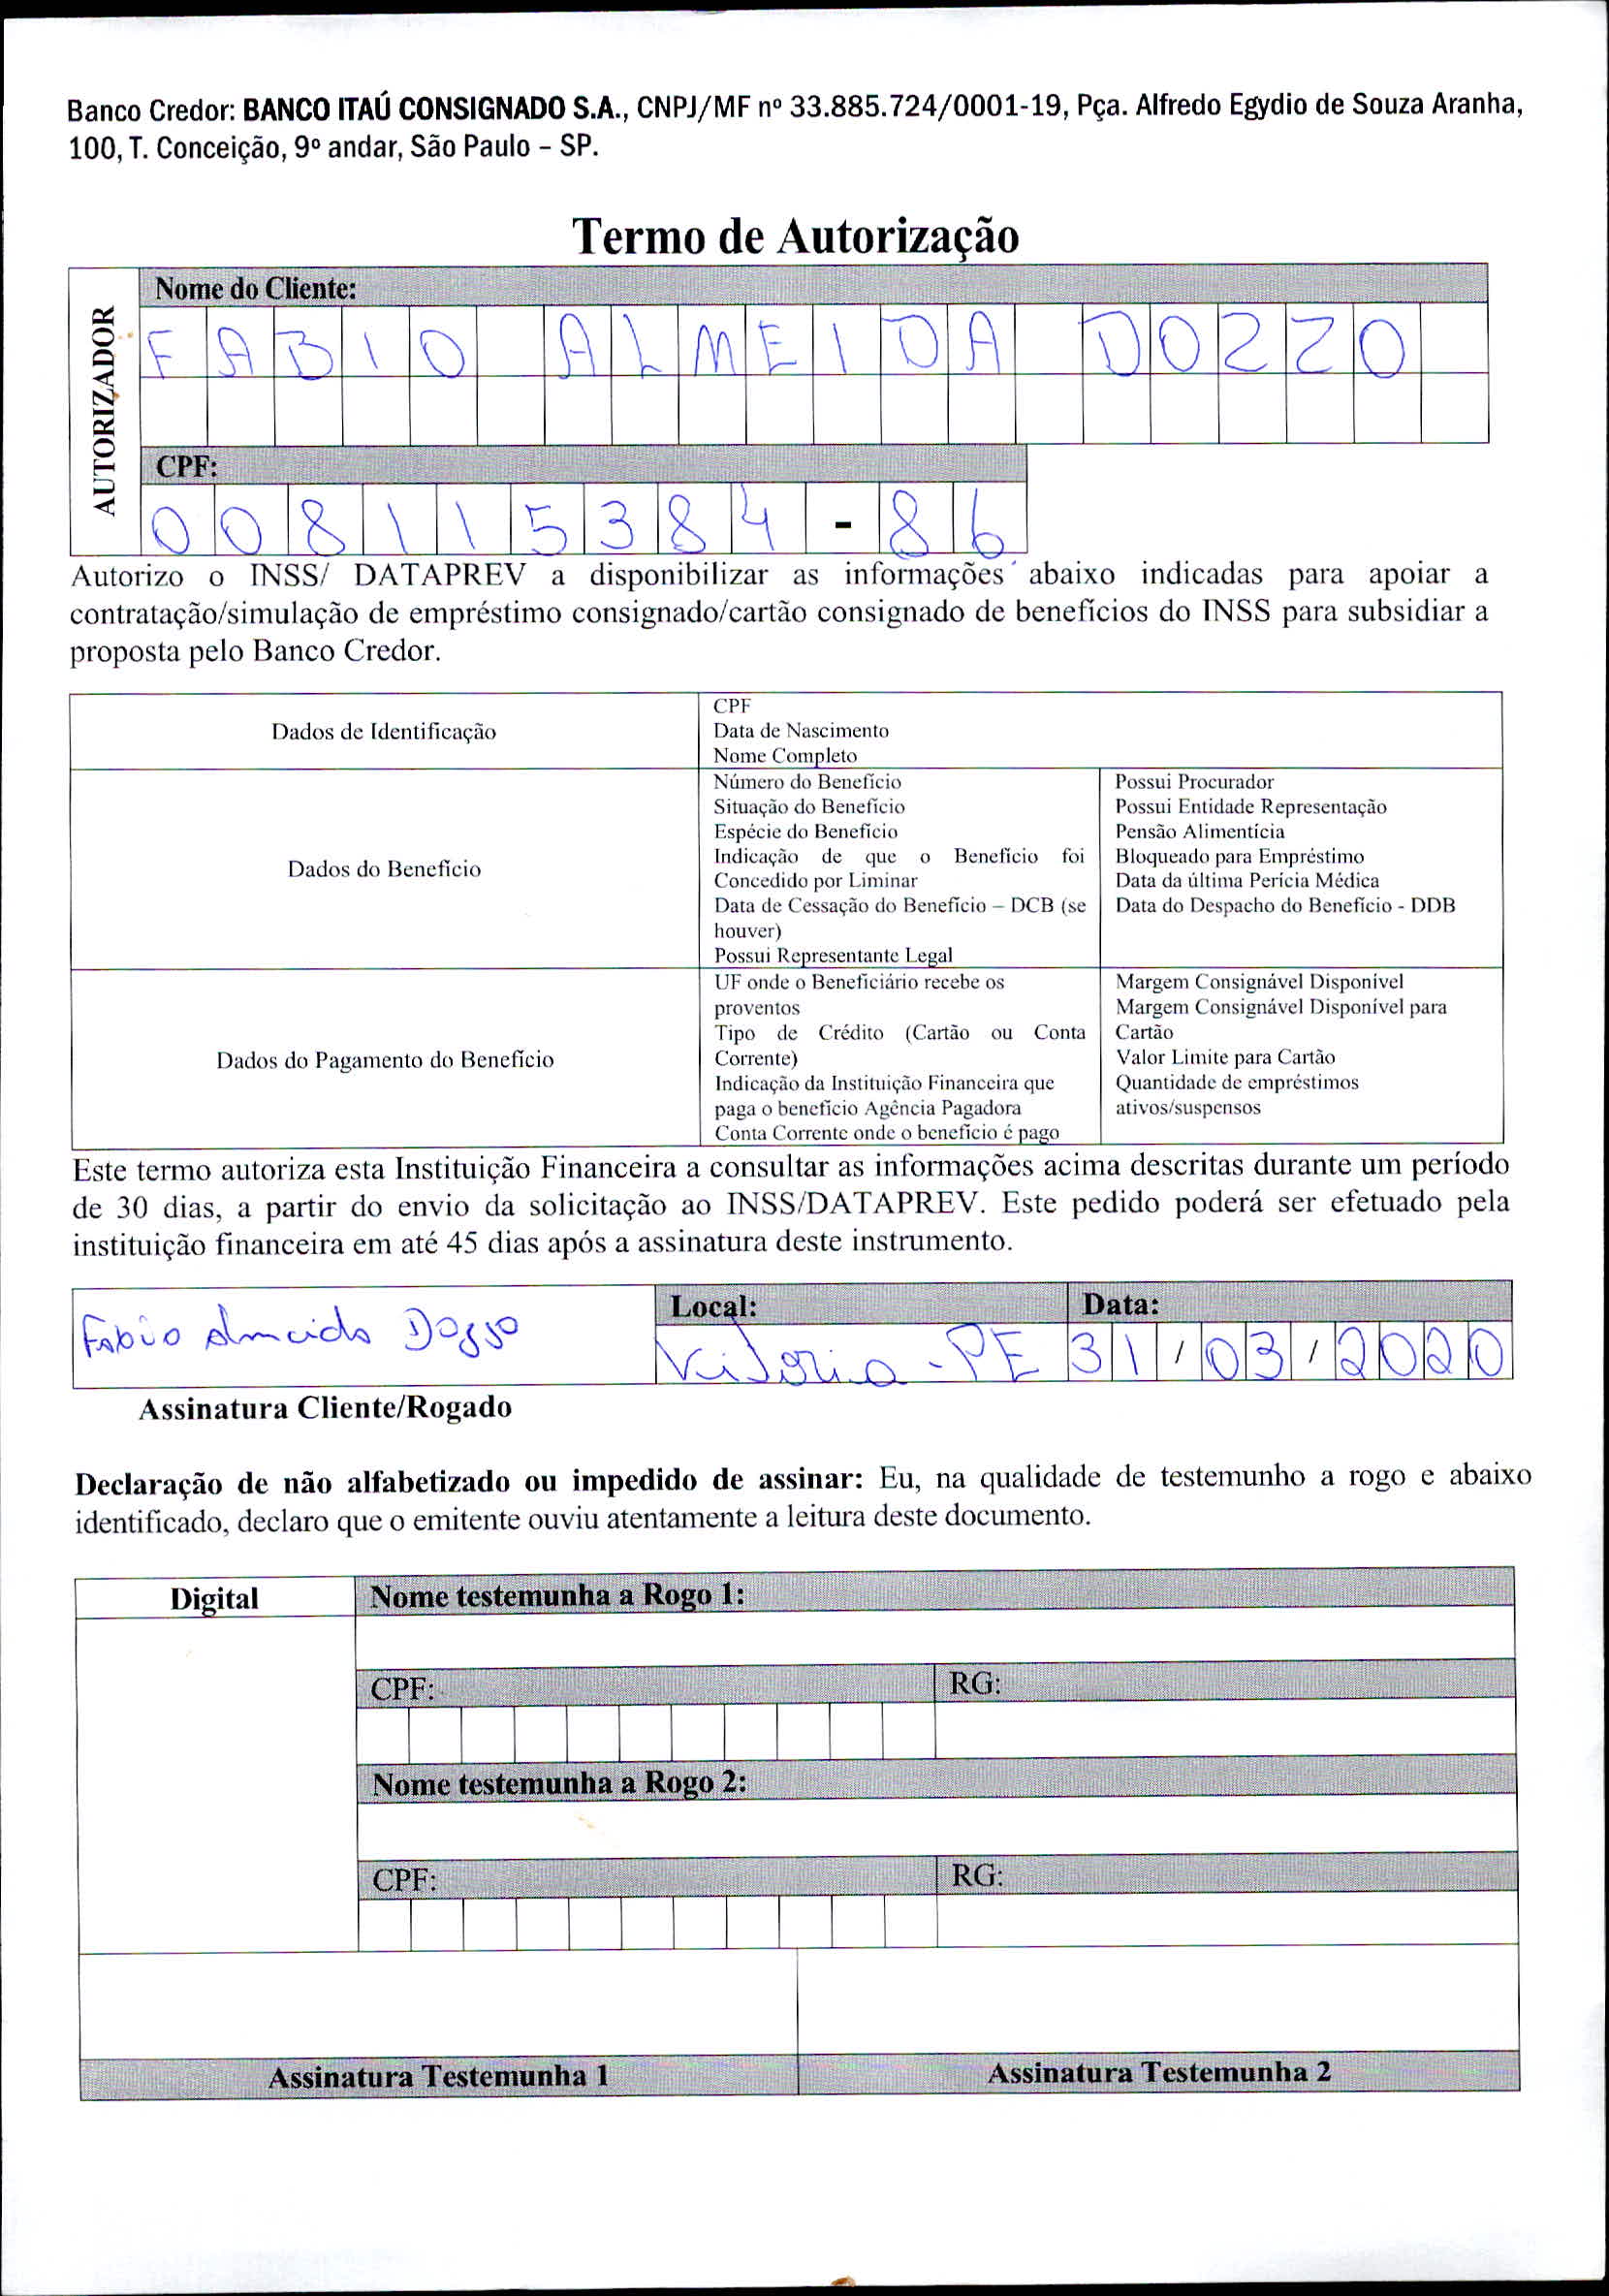 Banco Credor: BANCO ITAÚ CONSIGNADO S.A., CNPJ/MF nº 33.885.724/0001-19, Pça. Alfredo Egydio de Souza Aranha,
100, T. Conceição, 9º andar, São Paulo – SP.
Termo de Autorização
AUTORIZADOR
Nome do Cliente:
FABIO ALMEIDA DOZZO
CPF:
008115384-86
Autorizo o INSS/ DATAPREV a disponibilizar as informações abaixo indicadas para apoiar a
contratação/simulação de empréstimo consignado/cartão consignado de benefícios do INSS para subsidiar a
proposta pelo Banco Credor.
Dados de Identificação
CPF
Data de Nascimento
Nome Completo
Dados do Benefício
Número do Benefício
Situação do Benefício
Espécie do Benefício
Indicação de que o Benefício foi
Concedido por Liminar
Data de Cessação do Benefício – DCB (se
houver)
Possui Representante Legal
Possui Procurador
Possui Entidade Representação
Pensão Alimentícia
Bloqueado para Empréstimo
Data da última Perícia Médica
Data do Despacho do Benefício - DDB
Dados do Pagamento do Benefício
UF onde o Beneficiário recebe os
proventos
Tipo de Crédito (Cartão ou Conta
Corrente)
Indicação da Instituição Financeira que
paga o benefício Agência Pagadora
Conta Corrente onde o benefício é pago
Margem Consignável Disponível
Margem Consignável Disponível para
Cartão
Valor Limite para Cartão
Quantidade de empréstimos
ativos/suspensos
Este termo autoriza esta Instituição Financeira a consultar as informações acima descritas durante um período
de 30 dias, a partir do envio da solicitação ao INSS/DATAPREV. Este pedido poderá ser efetuado pela
instituição financeira em até 45 dias após a assinatura deste instrumento.
Fabio Almeida Dozzo
Local:
Vitoria - PE
Data:
31/03/2020
Assinatura Cliente/Rogado
Declaração de não alfabetizado ou impedido de assinar: Eu, na qualidade de testemunho a rogo e abaixo
identificado, declaro que o emitente ouviu atentamente a leitura deste documento.
Digital
Nome testemunha a Rogo 1:
CPF:
RG:
Nome testemunha a Rogo 2:
CPF:
RG:
Assinatura Testemunha 1
Assinatura Testemunha 2